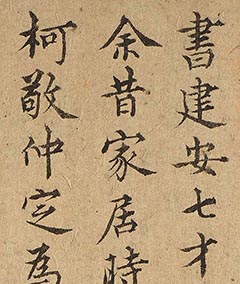 書建安七才
余昔家居時
柯敬仲定為